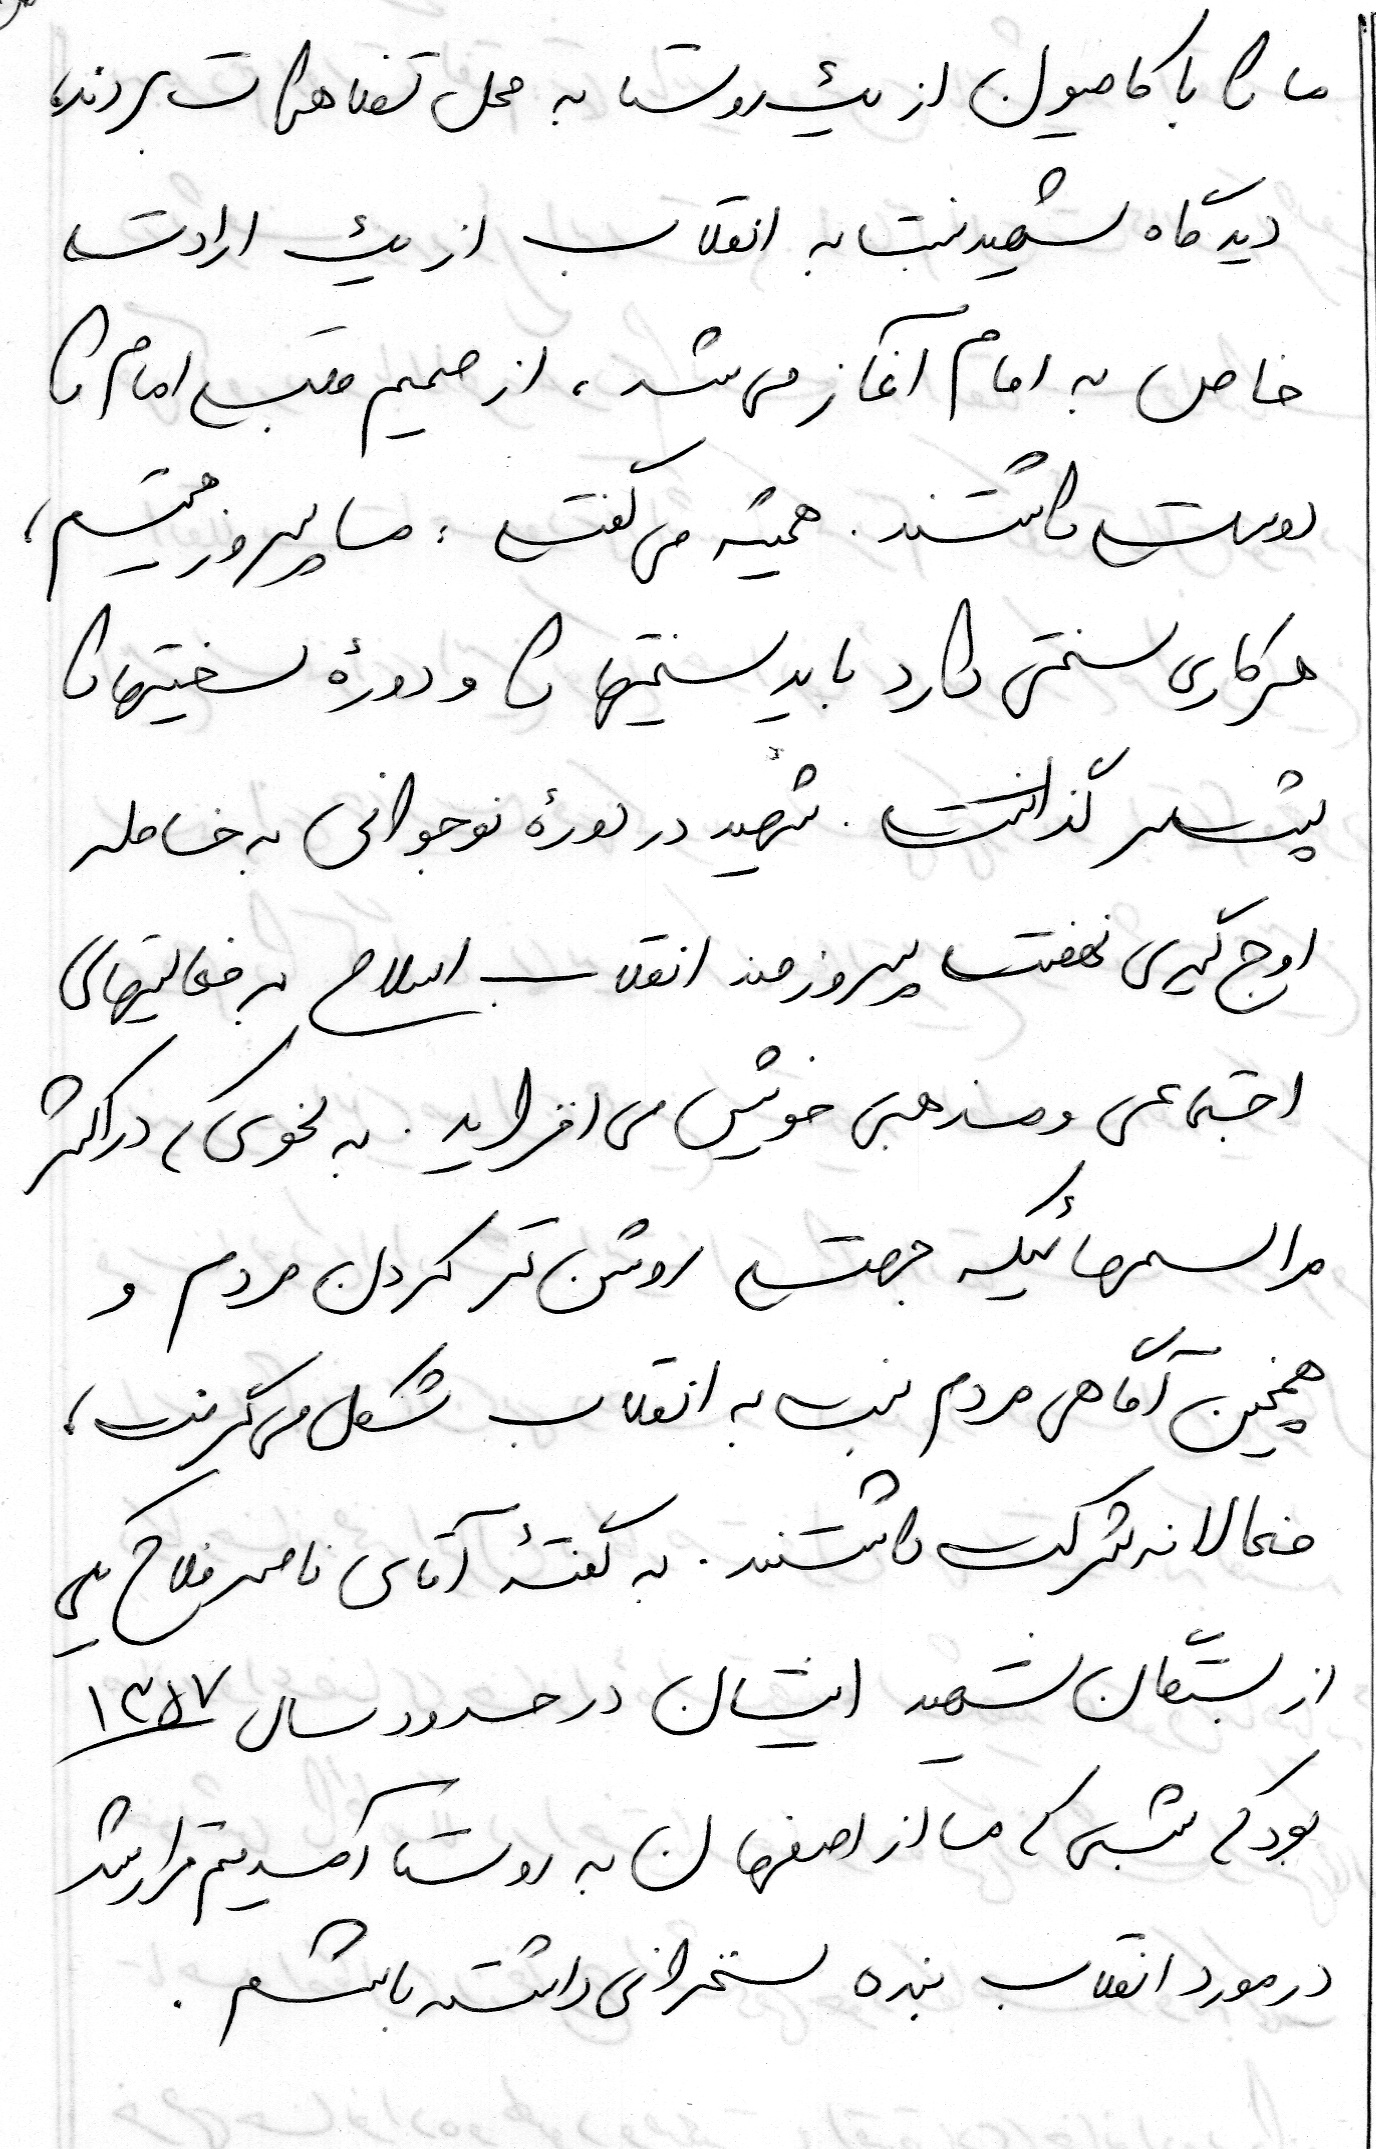 ما را با کامیون از یک روستا به محل تظاهرات بردند،
دیدگاه شهید نسبت به انقلاب از یک ارادت
خاص به امام آغاز می شد، از صمیم قلب امام را
دوست داشتند. همیشه می گفت: ما پیروز هستیم،
هر کاری سختی دارد باید سختیها را و دورهٔ سختیها را
پشت سر گذاشت. شهید در دورهٔ نوجوانی به خاطر
اوج گیری نهضت پیروزمند انقلاب اسلامی به فعالیتهای
اجتماعی و مذهبی خویش می افزاید. به نحوی که در اکثر
مراسمهائیکه جهت روشن تر کردن مردم و
همچنین آگاهی مردم نسبت به انقلاب شکل می گرفت،
فعالانه شرکت داشتند. به گفتهٔ آقای ناصر فلاح یکی
از بستگان شهید ایشان در حدود سال ۱۳۵۷
بود که شبی که ما از اصفهان به روستا آمدیم قرار شد
در مورد انقلاب بنده سخنرانی داشته باشم.